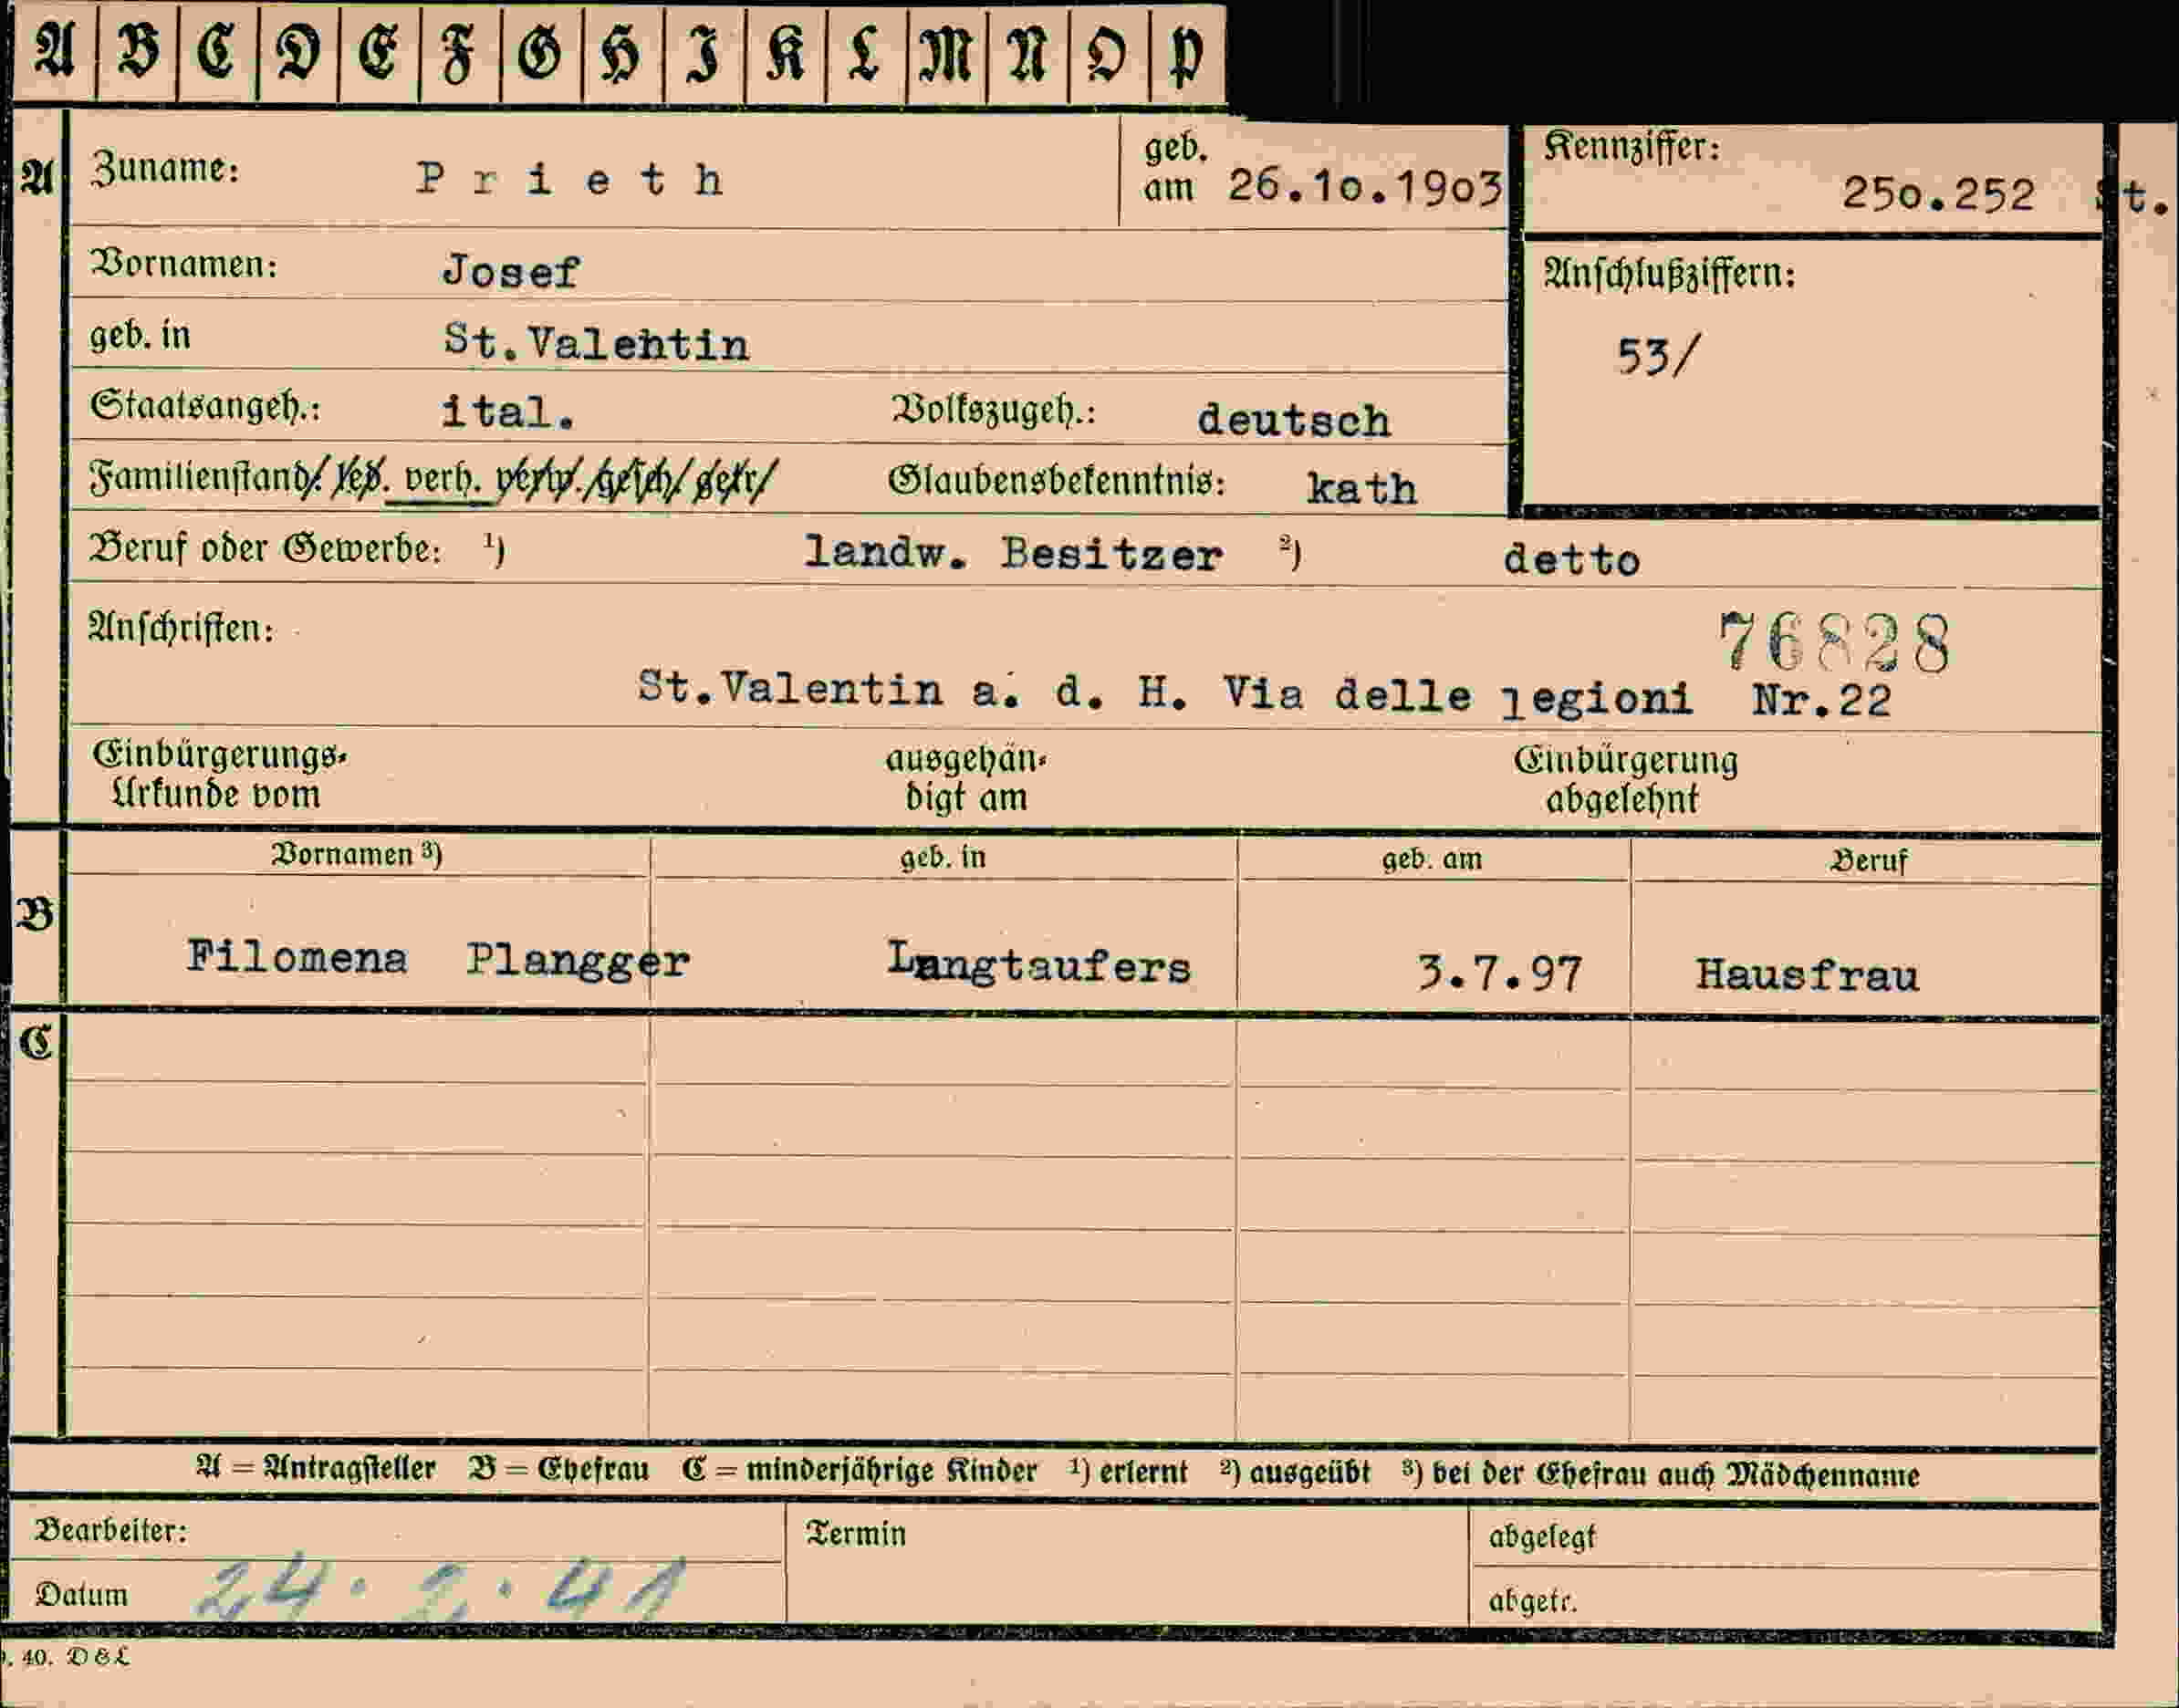 A B C D E F G H I K L M N O P
A Zuname: Prieth geb. am 26.10.1903 Kennziffer: 250.252 St.
Vornamen: Josef Anschlußziffern:
geb. in St.Valentin 53/
Staatsangeh.: ital. Volkszugeh.: deutsch
Familienstand: led. verh. verw. gesch. getr. Glaubensbekenntnis: kath
Beruf oder Gewerbe: ¹) landw. Besitzer ²) detto
Anschriften: 76828
St.Valentin a. d. H. Via delle legioni Nr.22
Einbürgerungs- ausgehän- Einbürgerung
Urkunde vom digt am abgelehnt
Vornamen ³) geb. in geb. am Beruf
B Filomena Plangger Langtaufers 3.7.97 Hausfrau
C
A = Antragsteller B = Ehefrau C = minderjährige Kinder ¹) erlernt ²) ausgeübt ³) bei der Ehefrau auch Mädchenname
Bearbeiter: Termin abgelegt
Datum 24.2.41 abgetr.
40. D&L